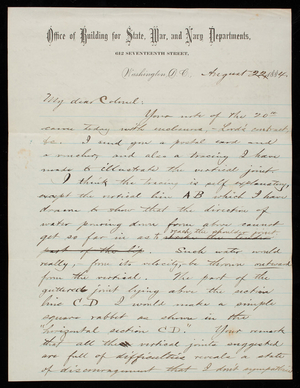 Office of Building for State, War, and Navy Departments,
612 SEVENTEENTH STREET,
Washington, D.C. August 22, 1884.
My dear Colonel:
Your note of the 20th
came today with enclosures, - Lord's contract,
&c. I send you a postal card and
a voucher, and also a tracing I have
made to illustrate the vertical joints
I think the tracing is self explanatory,
except the vertical line AB which I have
drawn to show that the direction of
water pouring down from above cannot
get so far in as to reach the
part of the lip. Such water would
really, from its velocity, be thrown outward
from the vertical. The part of the
gutter joint lying above the broken
line CD I would make a simple
square rabbet as shown in the
"horizontal section C.D." Your remark
that all the vertical joints suggested
are full of difficulties reveals a state
of discouragement that I don't sympathize